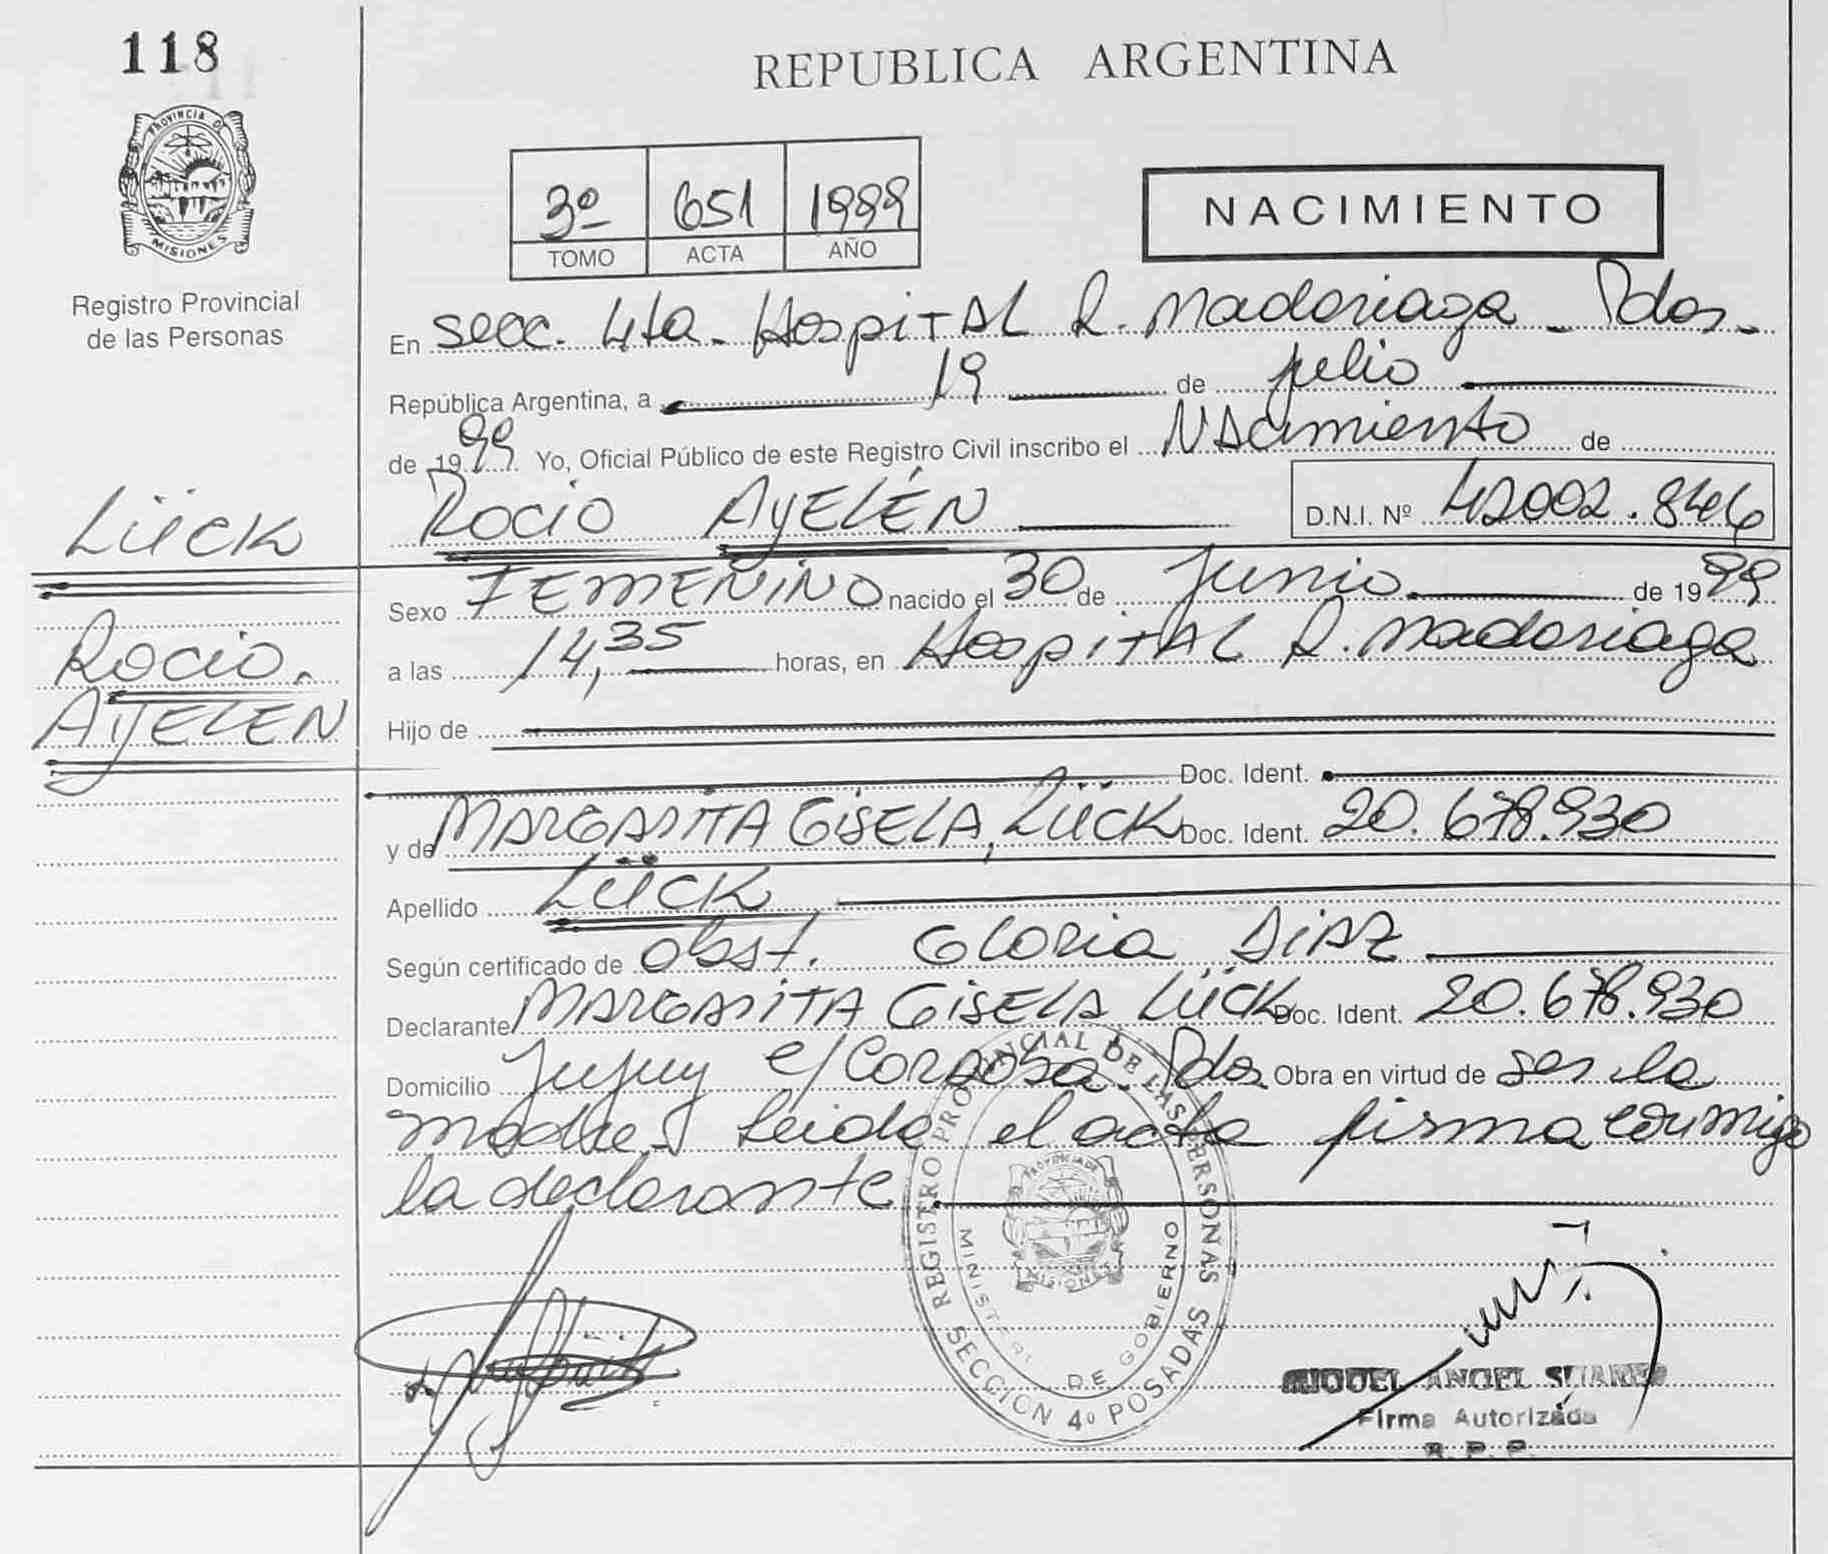 118
REPUBLICA ARGENTINA
PROVINCIA DE
MISIONES
Registro Provincial
de las Personas
3º 651 1999
TOMO ACTA AÑO
NACIMIENTO
En secc. 4ta. Hospital R. Madariaga - Pdas.
República Argentina, a 19 de julio
de 1999. Yo, Oficial Público de este Registro Civil inscribo el Nacimiento de
Rocio Ayelén D.N.I. Nº 42002.846
LÜCK
Rocio.
AYELEN
Sexo FEMENINO nacido el 30 de Junio de 1999
a las 14,35 horas, en Hospital R. Madariaga
Hijo de
Doc. Ident.
y de MARGARITA GISELA, LÜCK Doc. Ident. 20.678.930
Apellido LÜCK
Según certificado de obst. Gloria DIAZ
Declarante MARGARITA GISELA LÜCK Doc. Ident. 20.678.930
Domicilio Jujuy e/ Cordoba Pdas Obra en virtud de ser la
madre. Leida el acta firma conmigo
la declarante
REGISTRO PROVINCIAL DE LAS PERSONAS
MINISTERIO DE GOBIERNO
PROVINCIA DE
MISIONES
SECCION 4º POSADAS
MIGUEL ANGEL SUAREZ
Firma Autorizada
R. P. P.